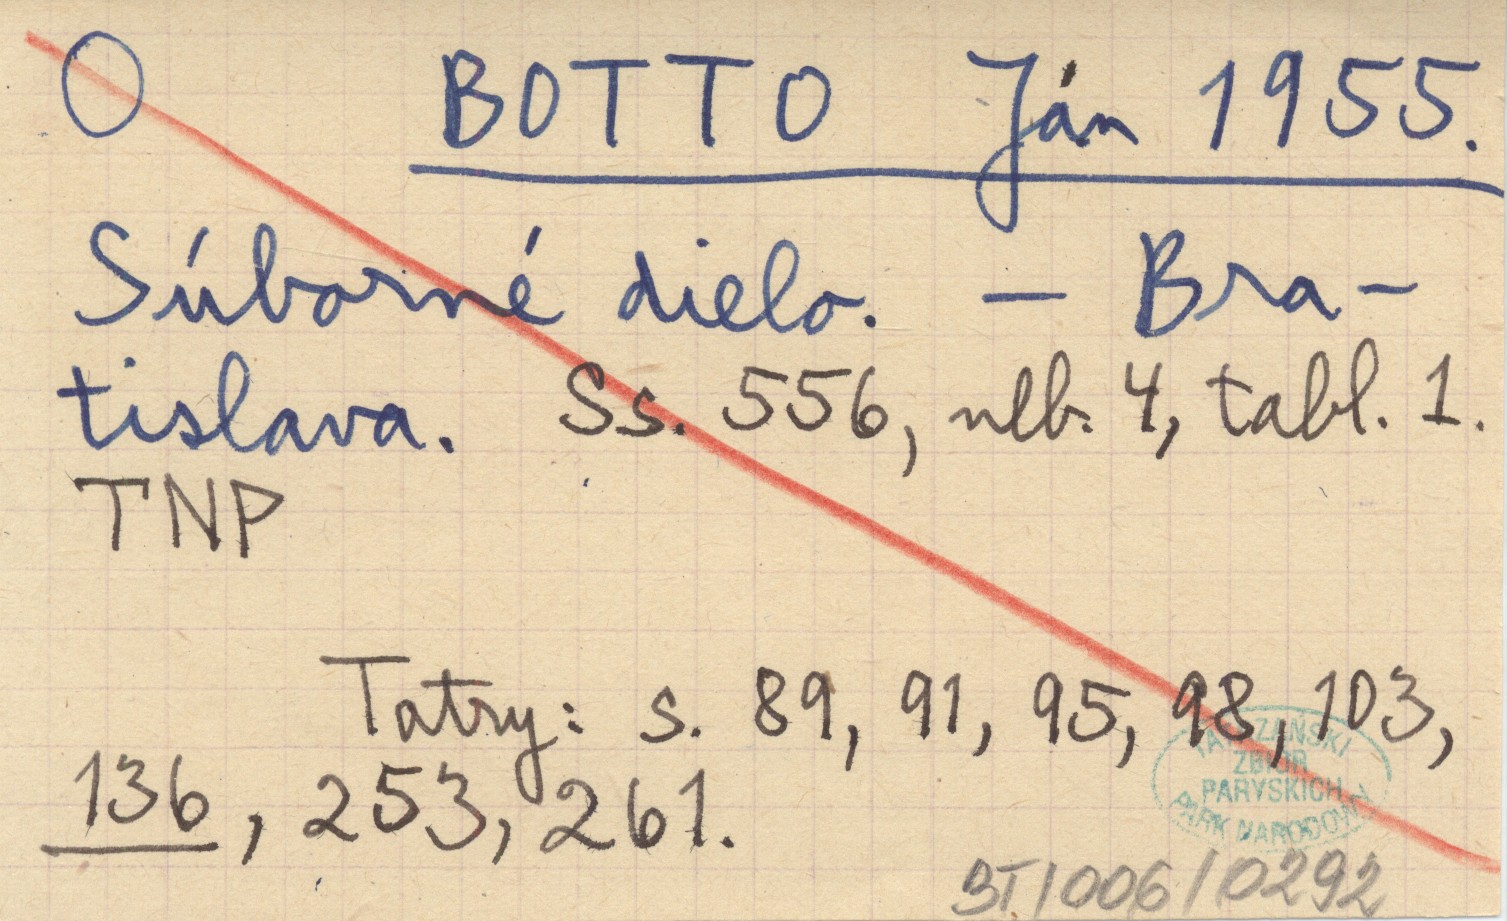 O BOTTO Ján 1955.
Súborné dielo. — Bra-
tislava. Ss. 556, nlb. 4, tabl. 1.
TNP
Tatry: s. 89, 91, 95, 98, 103,
136, 253, 261.
TATRZAŃSKI
ZBIÓR
PARYSKICH
PARK NARODOWY
BT/006/0292